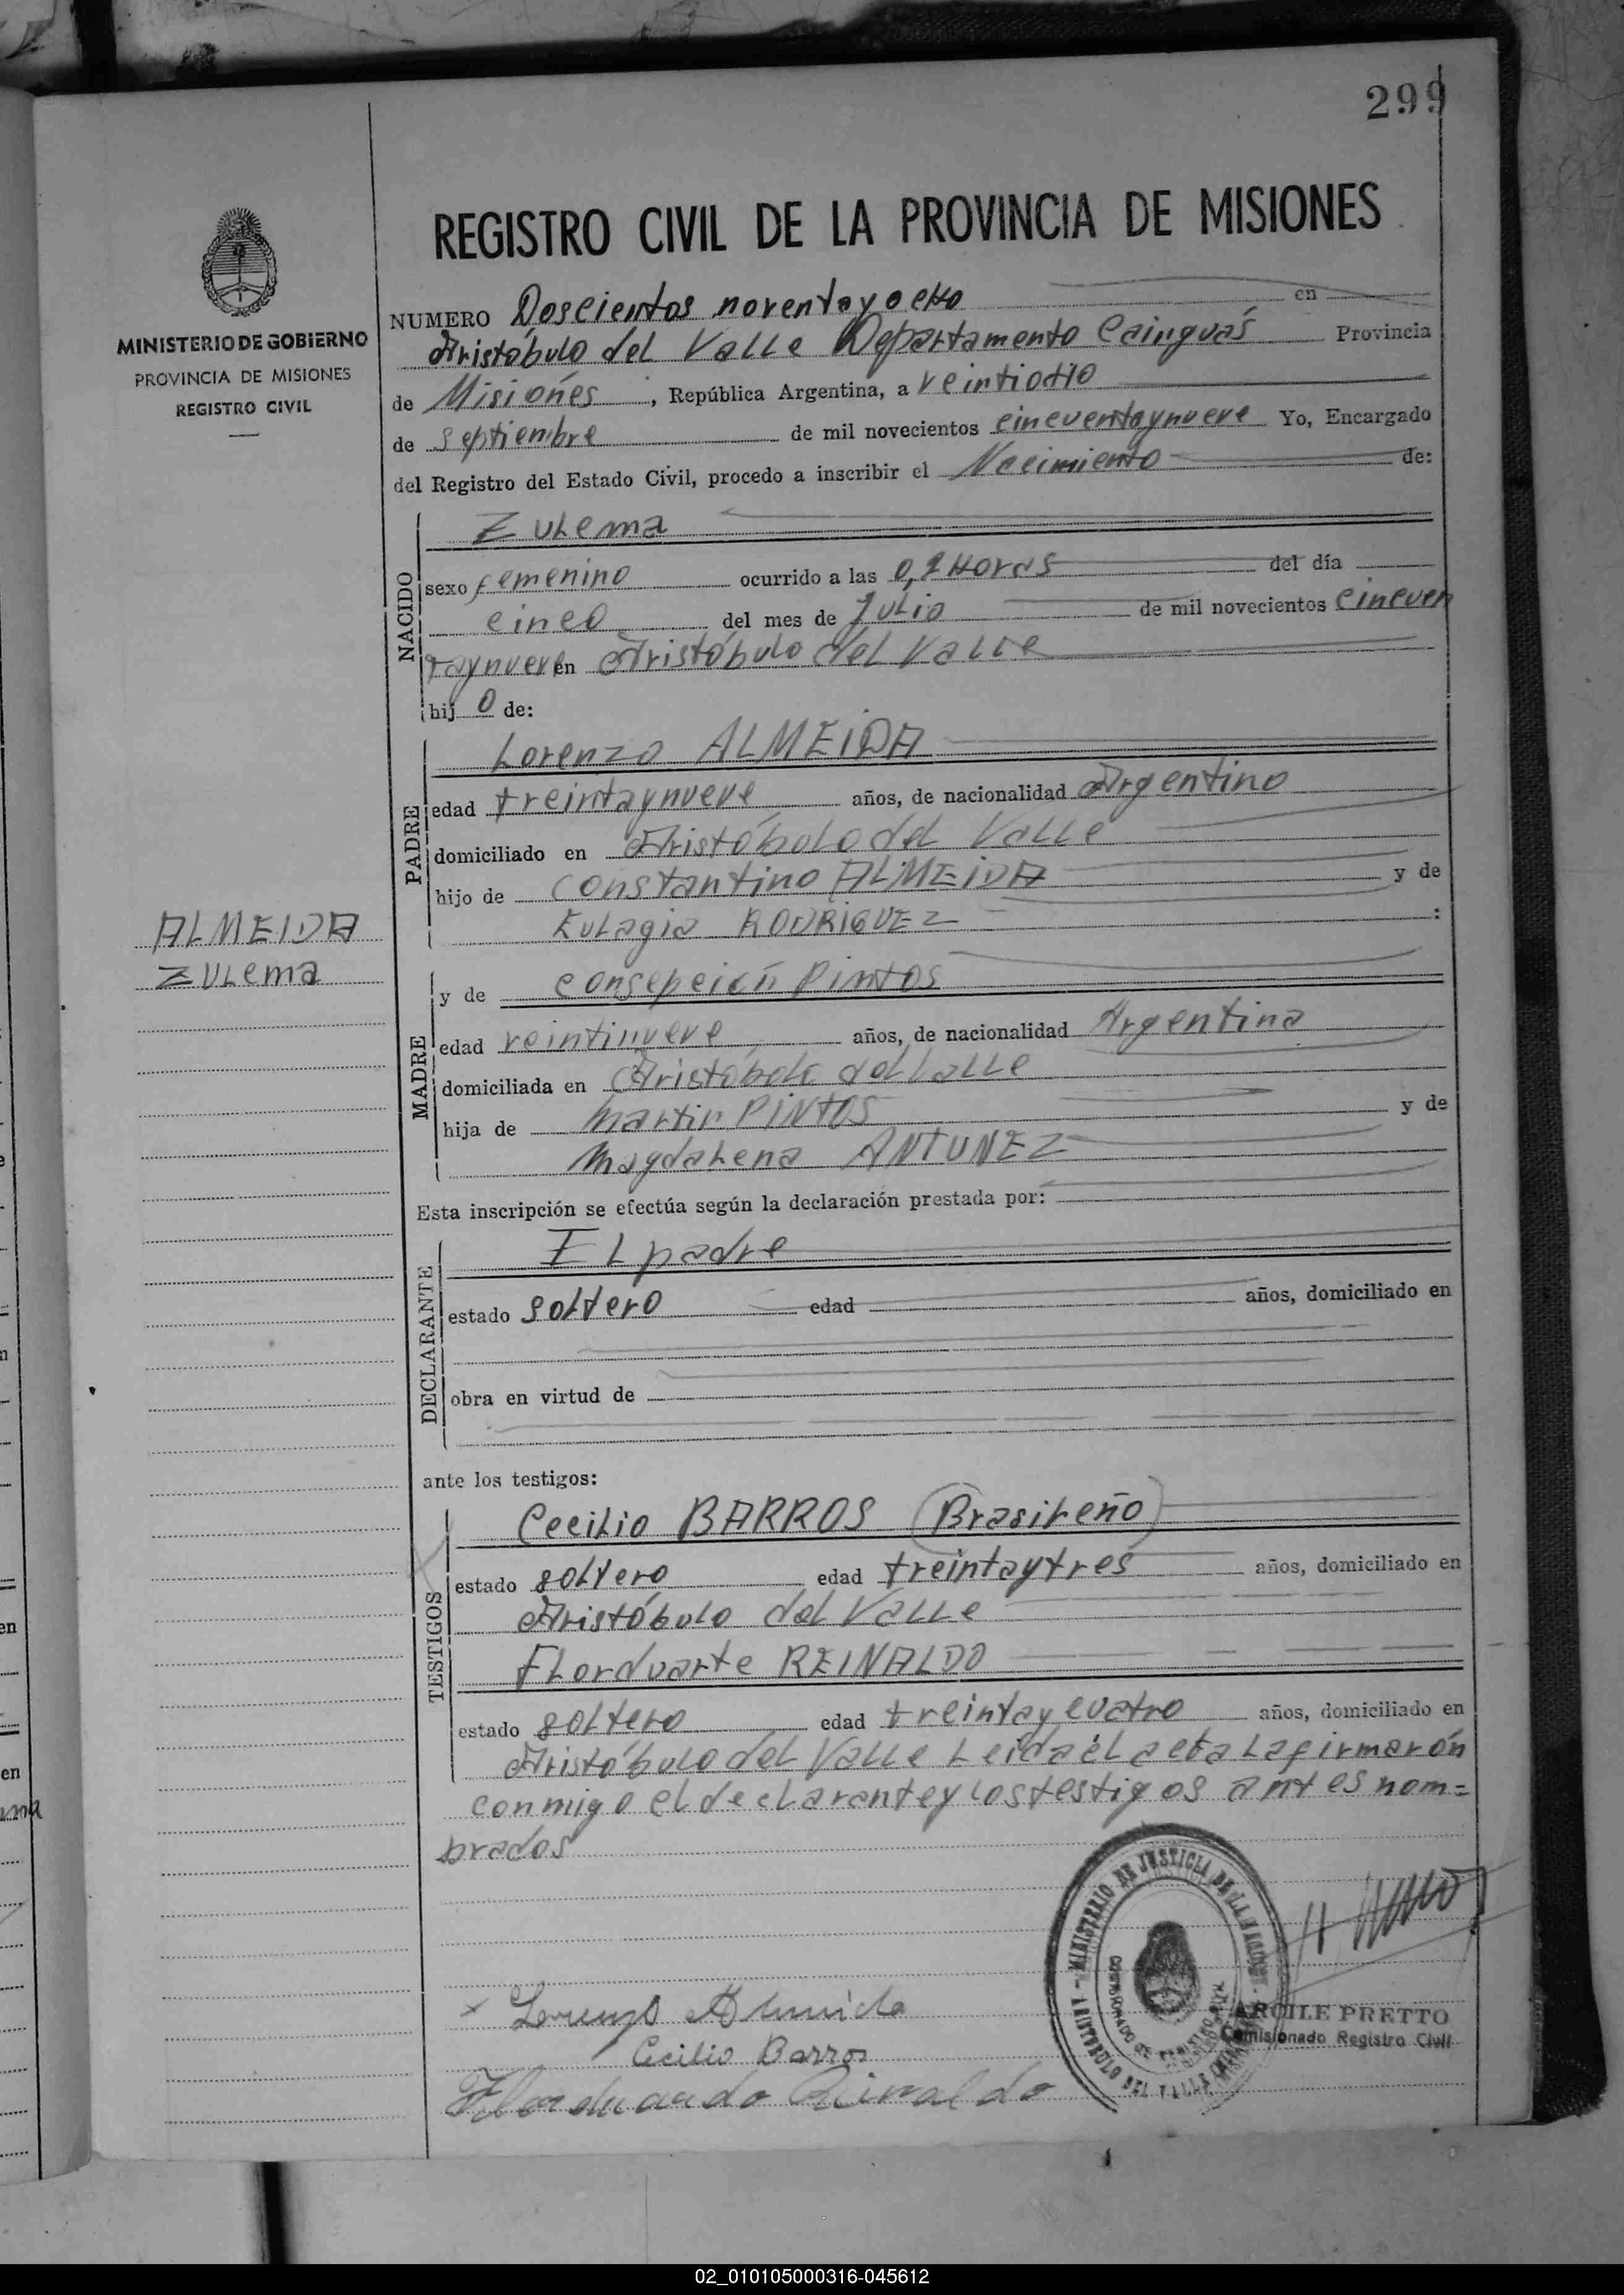 299
REGISTRO CIVIL DE LA PROVINCIA DE MISIONES
MINISTERIO DE GOBIERNO
PROVINCIA DE MISIONES
REGISTRO CIVIL
NUMERO Doscientos noventayocho en
Aristóbulo del Valle Departamento Cainguás Provincia
de Misiones, República Argentina, a veintiocho
de septiembre de mil novecientos cincuentaynueve Yo, Encargado
del Registro del Estado Civil, procedo a inscribir el Nacimiento de:
NACIDO
Zulema
sexo femenino ocurrido a las 0,1 Horas del día
cinco del mes de Julio de mil novecientos cincuen
taynueve en Aristóbulo del Valle
hij o de:
PADRE
Lorenzo ALMEIDA
edad treintaynueve años, de nacionalidad Argentino
domiciliado en Aristóbulo del Valle
hijo de Constantino ALMEIDA y de
Eulagia RODRIGUEZ :
ALMEIDA
Zulema
MADRE
y de Consepción Pintos
edad veintinueve años, de nacionalidad Argentina
domiciliada en Aristóbolo del Valle
hija de Martin PINTOS y de
Magdalena ANTUNEZ
Esta inscripción se efectúa según la declaración prestada por:
DECLARANTE
El padre
estado soltero edad años, domiciliado en
obra en virtud de
ante los testigos:
TESTIGOS
Cecilio BARROS (Brasileño)
estado soltero edad treintaytres años, domiciliado en
Aristóbulo del Valle
Florduarte REINALDO
estado soltero edad treintaycuatro años, domiciliado en
Aristóbulo del Valle Leida el acta La firmarón
conmigo el declarante y los testigos antes nom=
brados
MINISTERIO DE JUSTICIA DE LA NACION
ARISTOBULO DEL VALLE
x Lorenzo Almeida
ARCILE PRETTO
Comisionado Registro Civil
Cecilio Barros
Florduardo Rinaldo
02_010105000316-045612